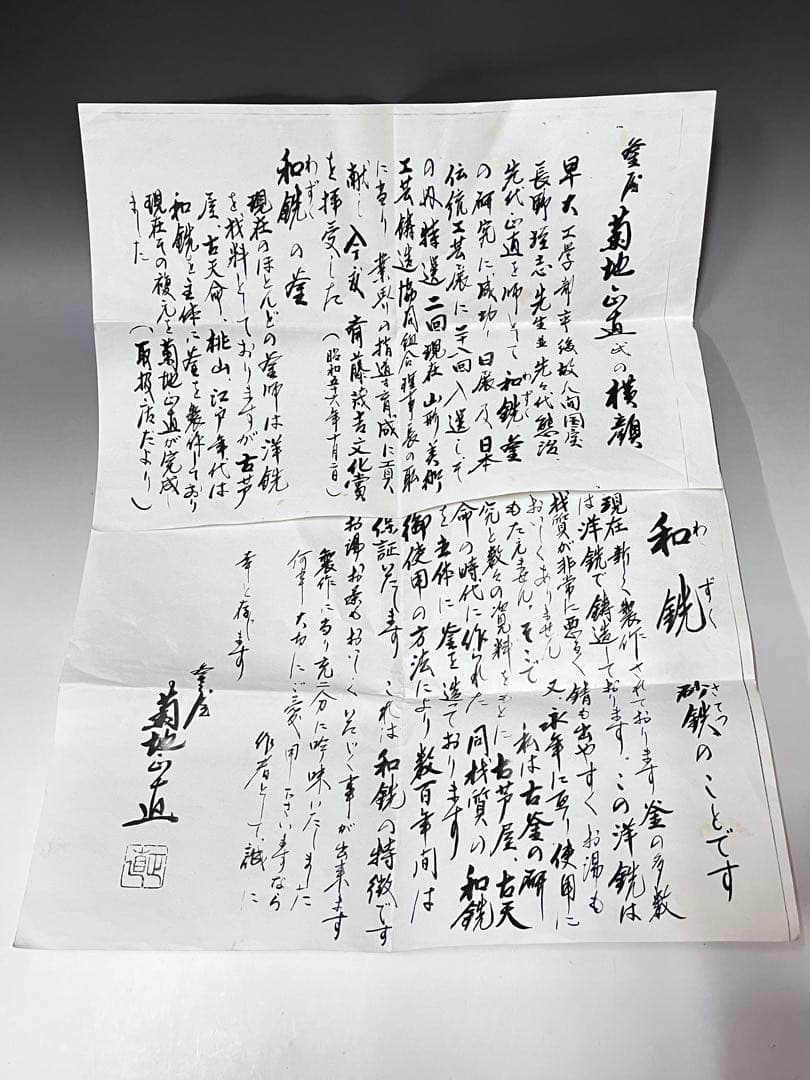 釜屋 菊地正直氏の横顔
早大工学部卒後故人間国宝
長野垤志先生並先々代熊治、
先代正直を師として 和銑釜
わずく
の研究に成功、日展及、日本
伝統工芸展に二十八回入選しそ
の内 特選二回現在山形美術
工芸鋳造協同組合理事長の職
に当り 業界の指導育成に貢
献し 今度 斎藤茂吉文化賞
を拝受した (昭和五十六年十月一日)
和銑の釜
わずく
現在のほとんどの釜師は洋銑
を材料としておりますが古芦
屋、古天命、桃山、江戸年代は
和銑を主体に釜を製作しており
現在その復元を菊地正直が完成し
ました
(取扱店だより)
和銑 砂鉄のことです
わずく さてつ
現在 新しく製作されております釜の多数
は洋銑で鋳造しております。この洋銑は
材質が非常に悪るく錆も出やすく お湯も
おいしくありません 又、永年に亘り使用に
もたえません。そこで 私は古釜の研
究と数々の資料をもとに古芦屋、古天
命の時代に作られた 同材質の和銑
を主体に釜を造っております
御使用の方法により数百年間は
保証いたします これは和銑の特徴です
お湯お茶もおいしくいただく事が出来ます
製作に当り充二分に吟味いたしました
何卒大切にご愛用下さいますなら
作者として、誠に
幸と存じます
釜屋
菊地正直
正直